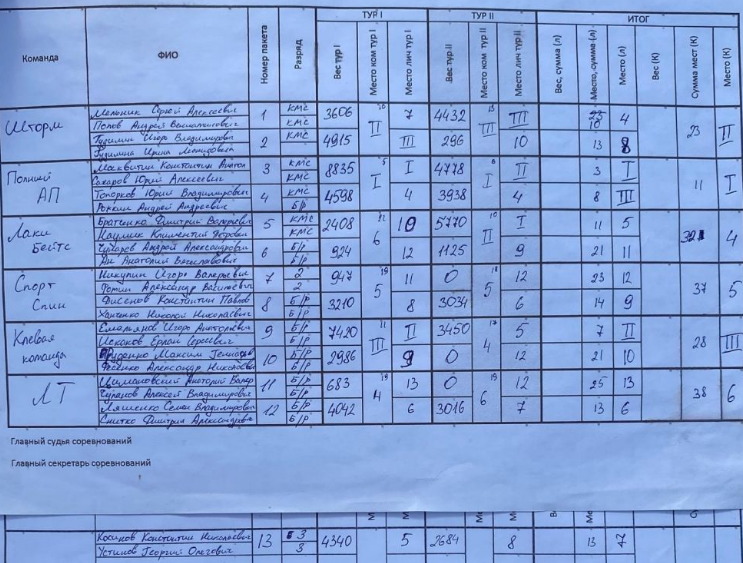 ТУР I ТУР II ИТОГ
Команда ФИО Номер пакета Разряд Вес тур I Место ком тур I Место лич тур I Вес тур II Место ком тур II Место лич тур II Вес, сумма (л) Место, сумма (л) Место (л) Вес (К) Сумма мест (К) Место (К)
Шторм Мельник Сергей Алексеевич 1 КМС 3606 II 7 4432 III III 4 23 II
Попов Андрей КМС
Гудилин Игорь Владимирович 2 КМС 4915 III 296 10 13 8
Гудилина Ирина
Полный АП Москвитин Константин 3 КМС 8835 I I 4778 I II 3 I 11 I
Сахаров Юрий Алексеевич КМС
Топорков Юрий Владимирович 4 КМС 4598 4 3938 4 8 III
Ронкин Андрей Андреевич Б/р
Лаки Бейтс Братченко Дмитрий Валерьевич 5 КМС 2408 6 10 5770 II I 11 5 4
Наумик Климентий КМС
Чухарев Андрей Александрович 6 Б/р 924 12 1125 9 21 11
Ан Анатолий Вячеславович Б/р
Спорт Спин Никулин Игорь Валерьевич 7 2 947 5 11 0 5 12 23 12 37 5
Фомин Александр 2
Фисенов Константин Павлов 8 Б/Р 3210 8 3034 6 14 9
Николай Николаевич Б/Р
Клевая команда Емельянов Игорь Анатольевич 9 Б/Р 7420 III II 3450 4 5 7 II 28 III
Искаков Ерлан Сергеевич Б/Р
Максим Геннадьев 10 Б/Р 2986 9 0 12 21 10
Александр Николаевич Б/Р
ЛТ Анатолий Валер 11 Б/Р 683 4 13 0 6 12 25 13 38 6
Алексей Владимирович Б/Р
Ляшенко Семен Владимирович 12 Б/Р 4042 6 3016 7 13 6
Снитко Дмитрий Александрович Б/Р
Главный судья соревнований
Главный секретарь соревнований
Косинов Константин Николаевич 13 3 4340 5 2684 8 13 7
Устинов Георгий Олегович 3